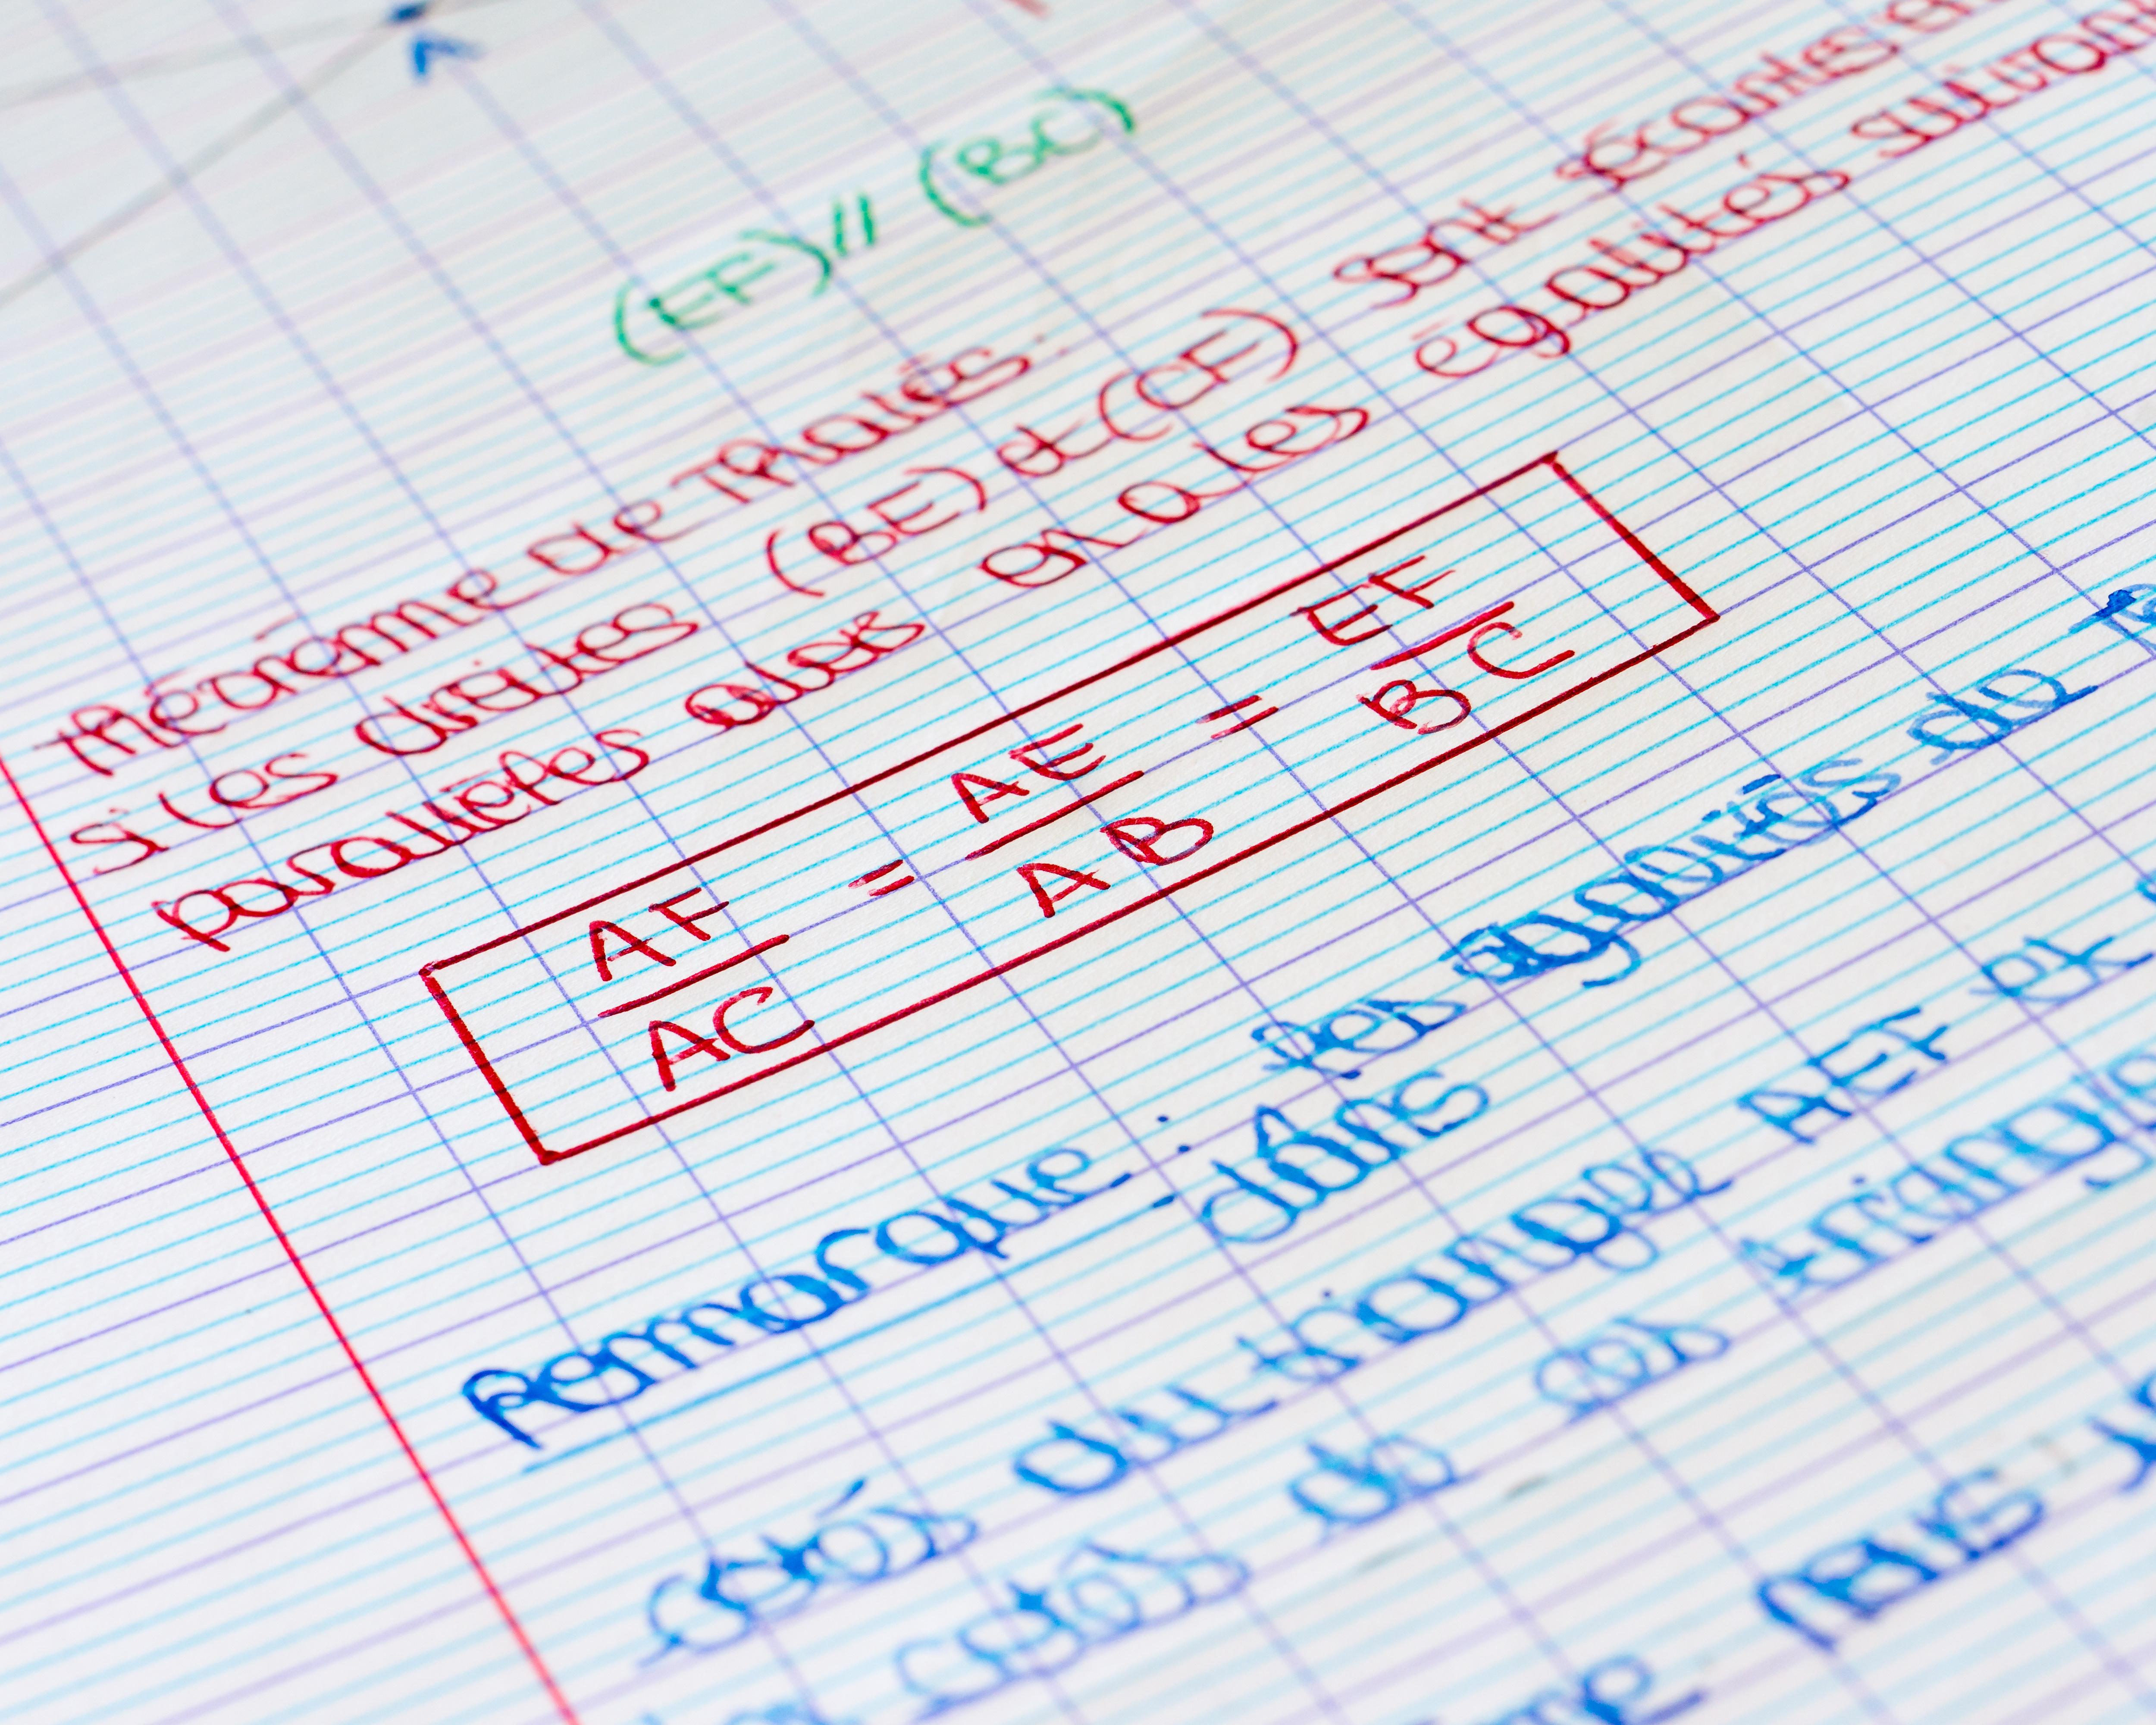 A
(EF) // (BC)
Théorème de Thalès :
Si les droites (BE) et (CF) sont sécantes en
parallèles alors on a les égalités suivan
AF = AE = EF
AC AB BC
Remarque : les égalités de
côtés du triangle AEF et
dans
côtés de ces triangle
nous